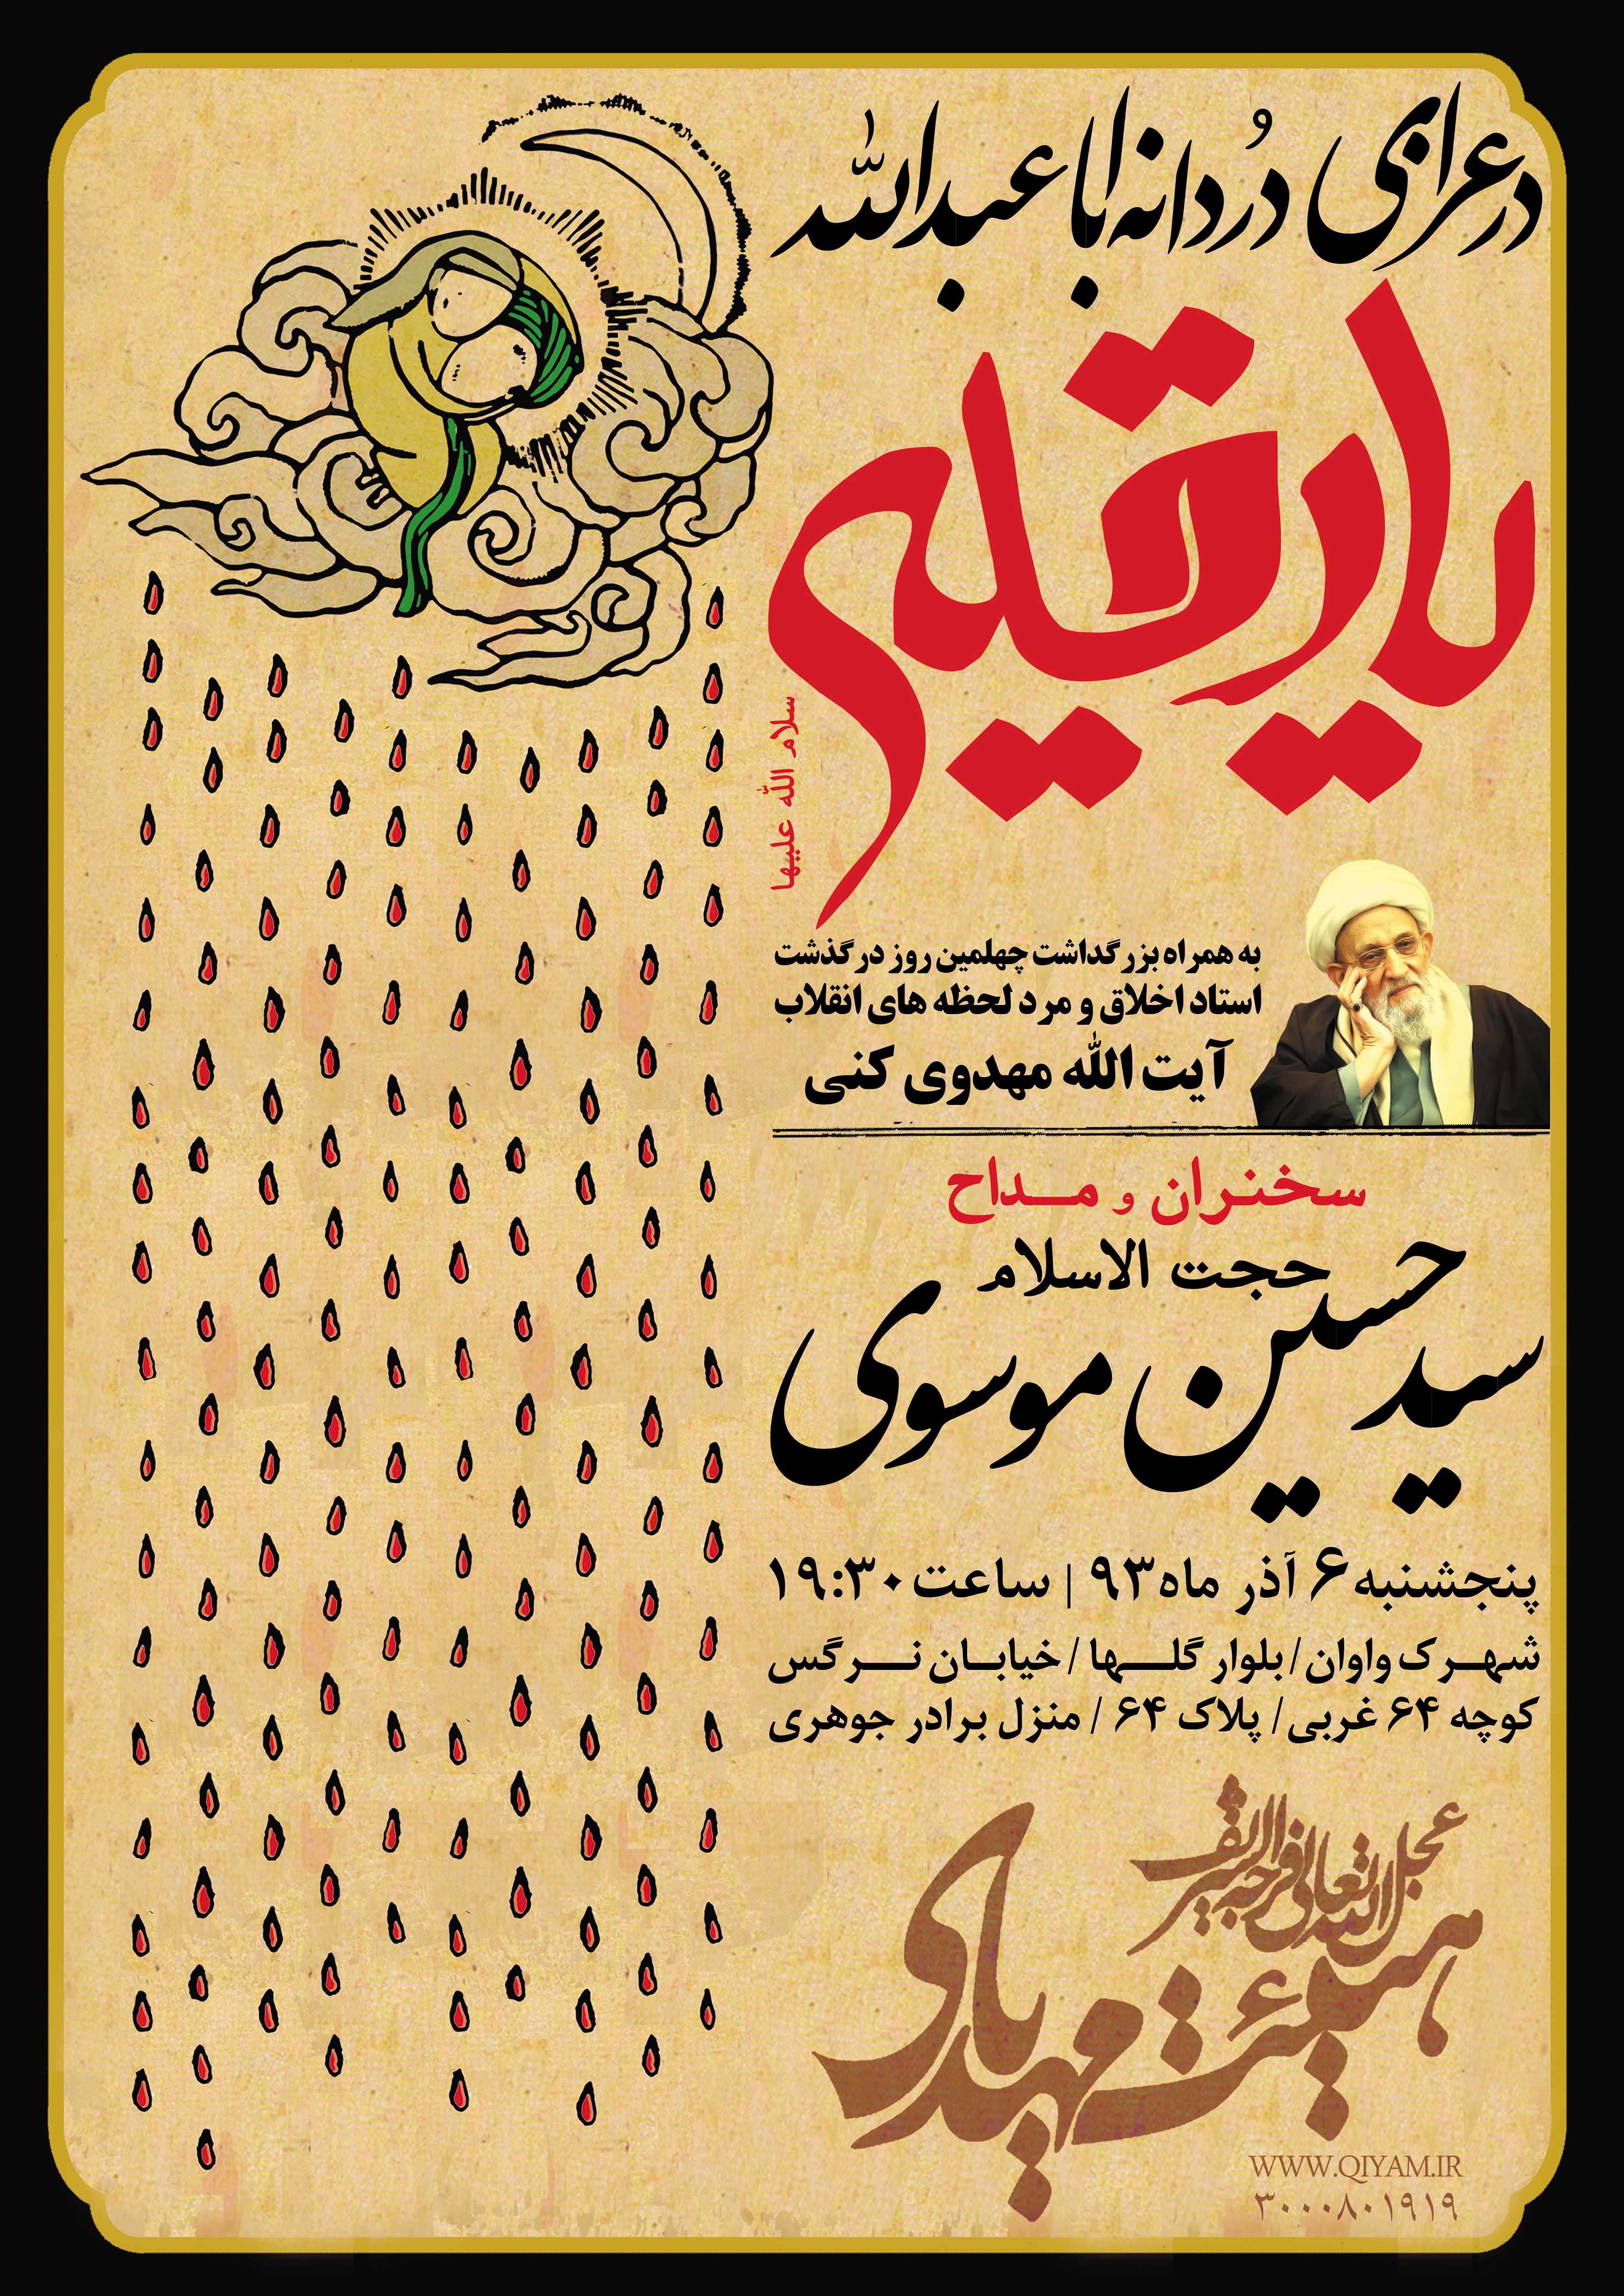 در عزای دُردانه اباعبدالله
یا رقیه
سلام الله علیها
به همراه بزرگداشت چهلمین روز درگذشت
استاد اخلاق و مرد لحظه های انقلاب
آیت الله مهدوی کنی
سخنران و مداح
حجت الاسلام
سید حسین موسوی
پنجشنبه ۶ آذر ماه ۹۳ | ساعت ۱۹:۳۰
شهرک واوان / بلوار گلها / خیابان نرگس
کوچه ۶۴ غربی / پلاک ۶۴ / منزل برادر جوهری
عجل الله تعالی فرجه الشریف
هیئت مهدیاری
WWW.QIYAM.IR
۳۰۰۰۸۰۱۹۱۹